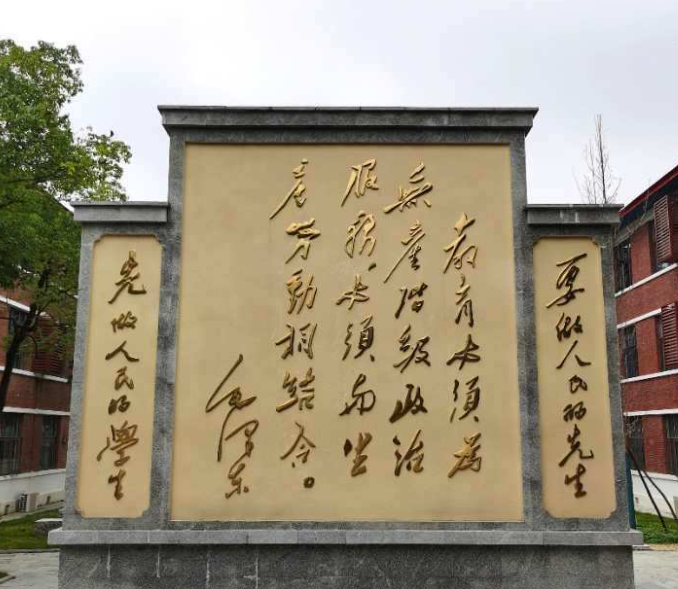 要做人民的先生
教育必須為
無產階級政治
服務,必須与生
產劳動相結合。
毛澤东
先做人民的學生